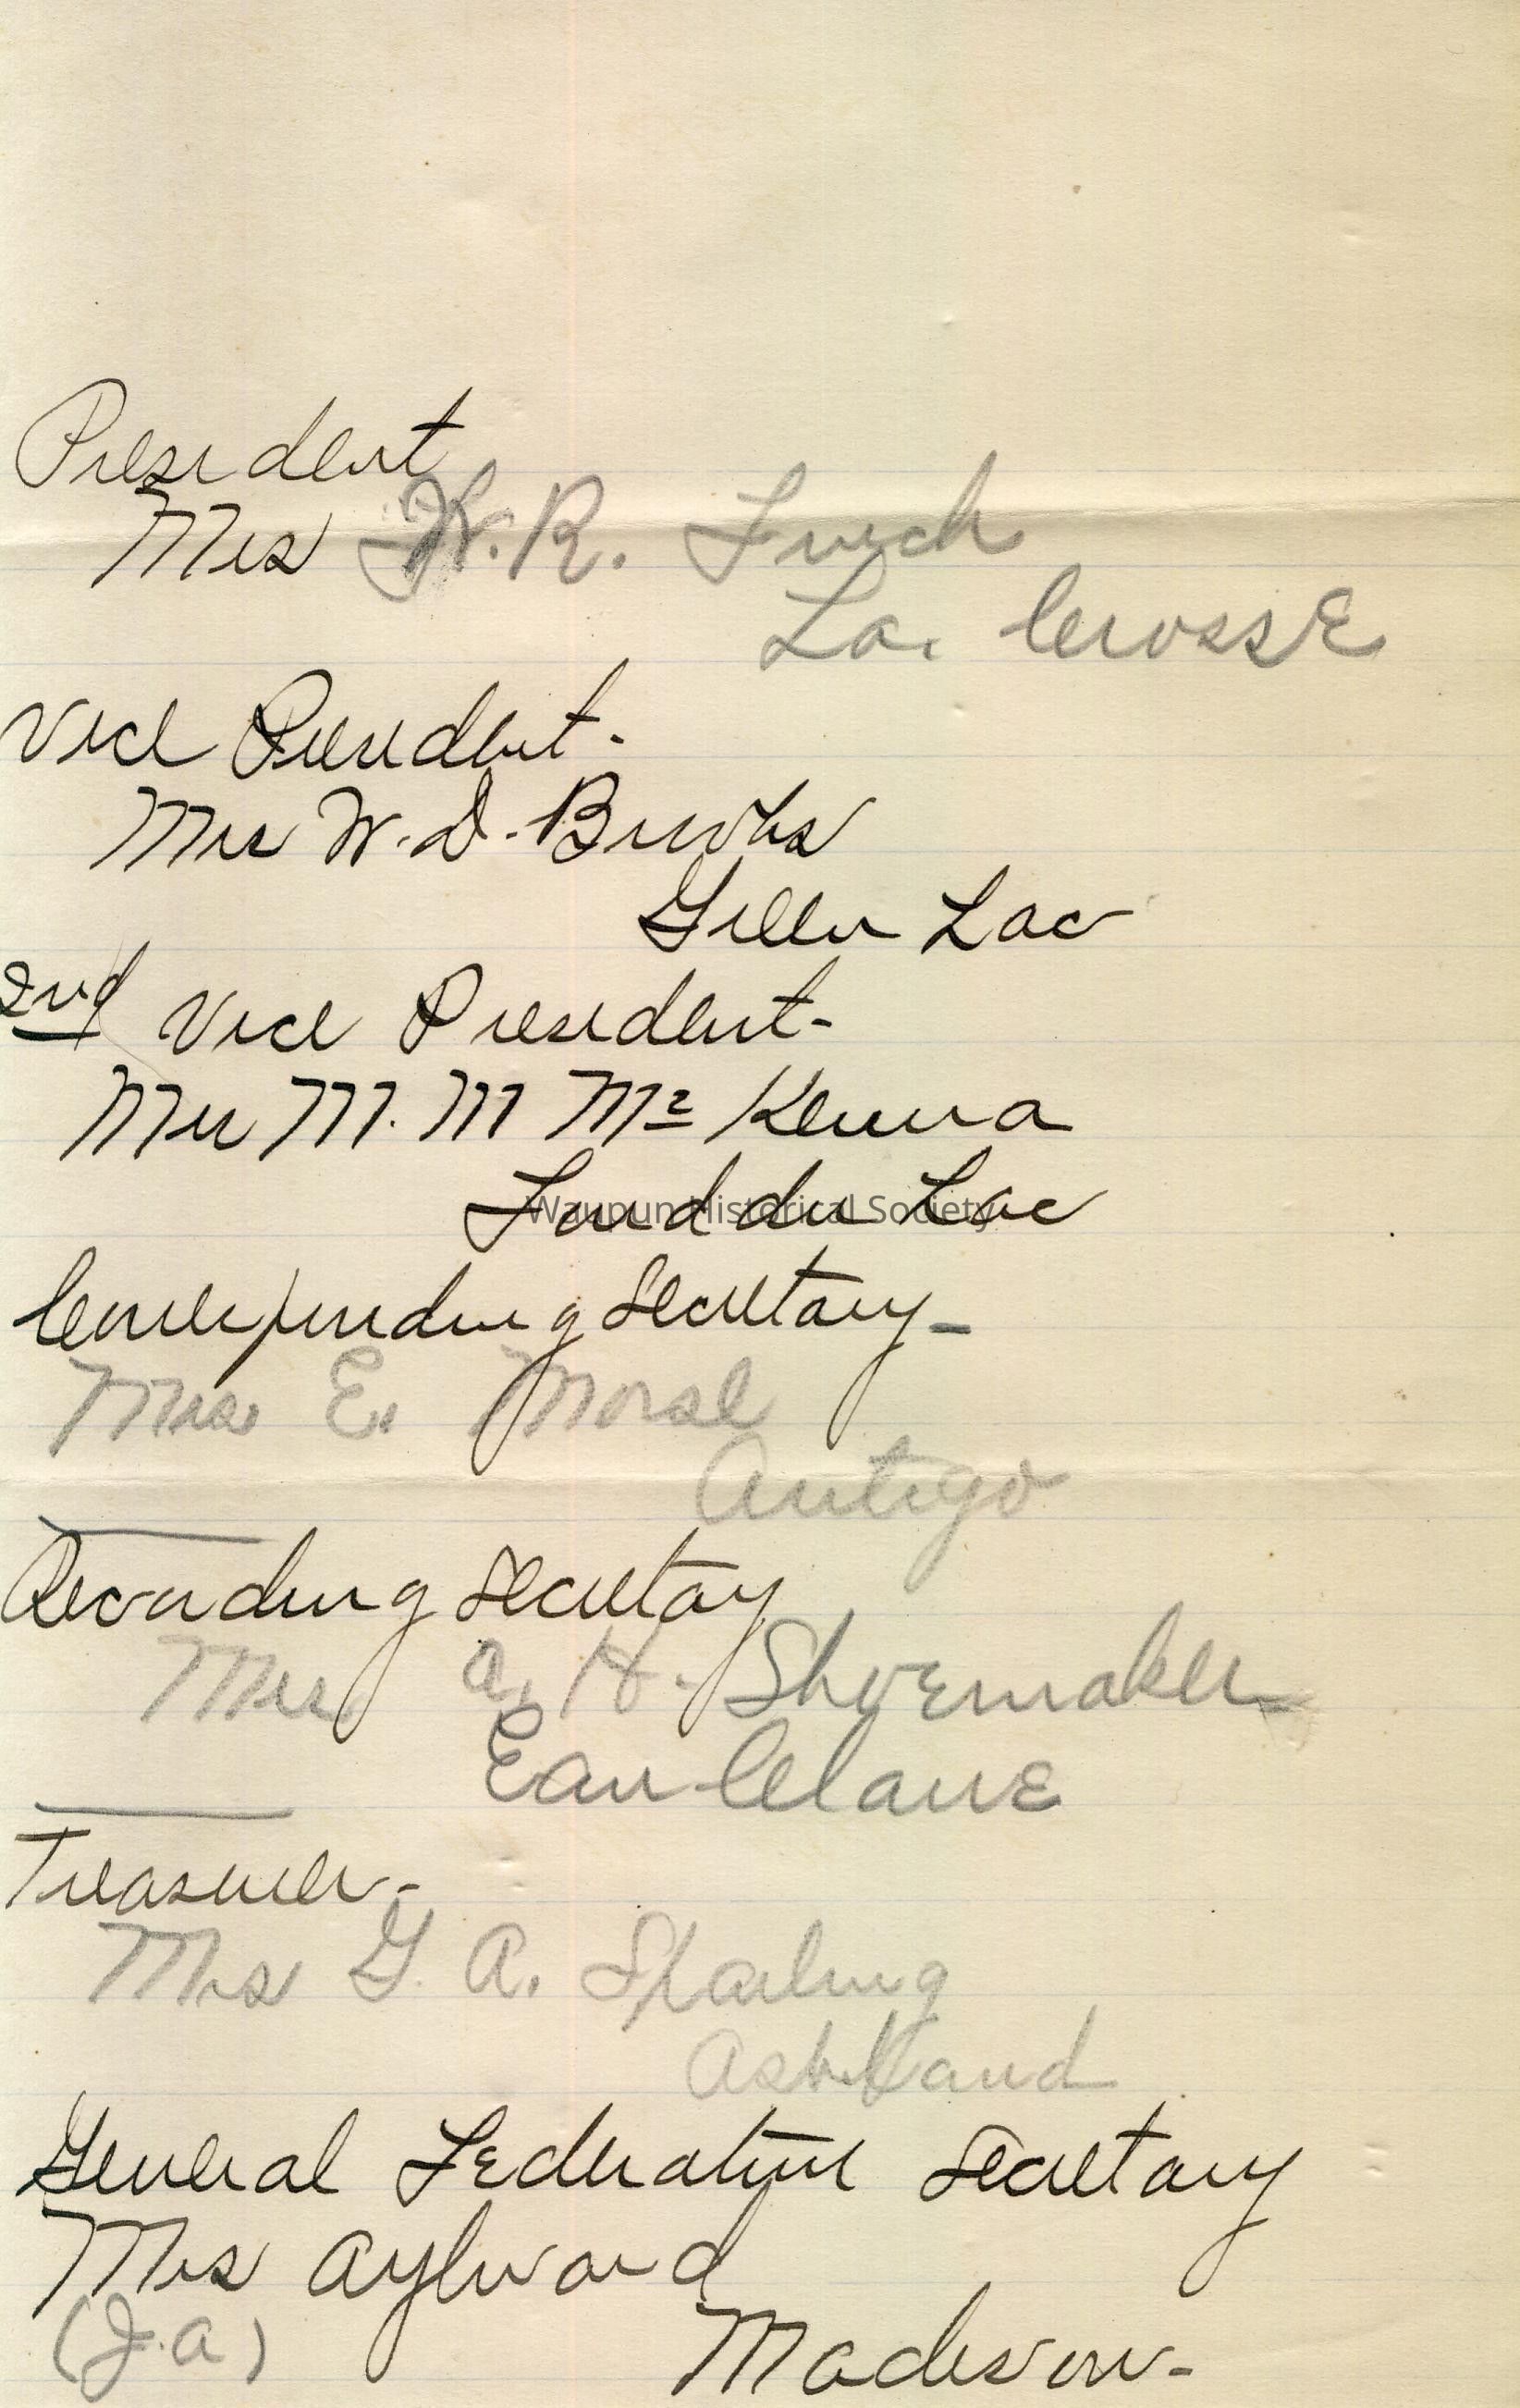 President
Mrs W. R. Finch
La. Crosse
Vice President -
Mrs W. D. Brooks
Green Lac
2nd Vice President -
Mrs M. M Mc Kenna
Fond du Lac
Waupun Historical Society
Corresponding Secretary -
Mrs. E. Morse
Antigo
Recording Secretay
Mrs. A. H. Shoemaker
Eau Claire
Treasurer -
Mrs G. A. Sparling
Ashland
General Federation Secretary
Mrs Aylward
(J. A)
Madison -